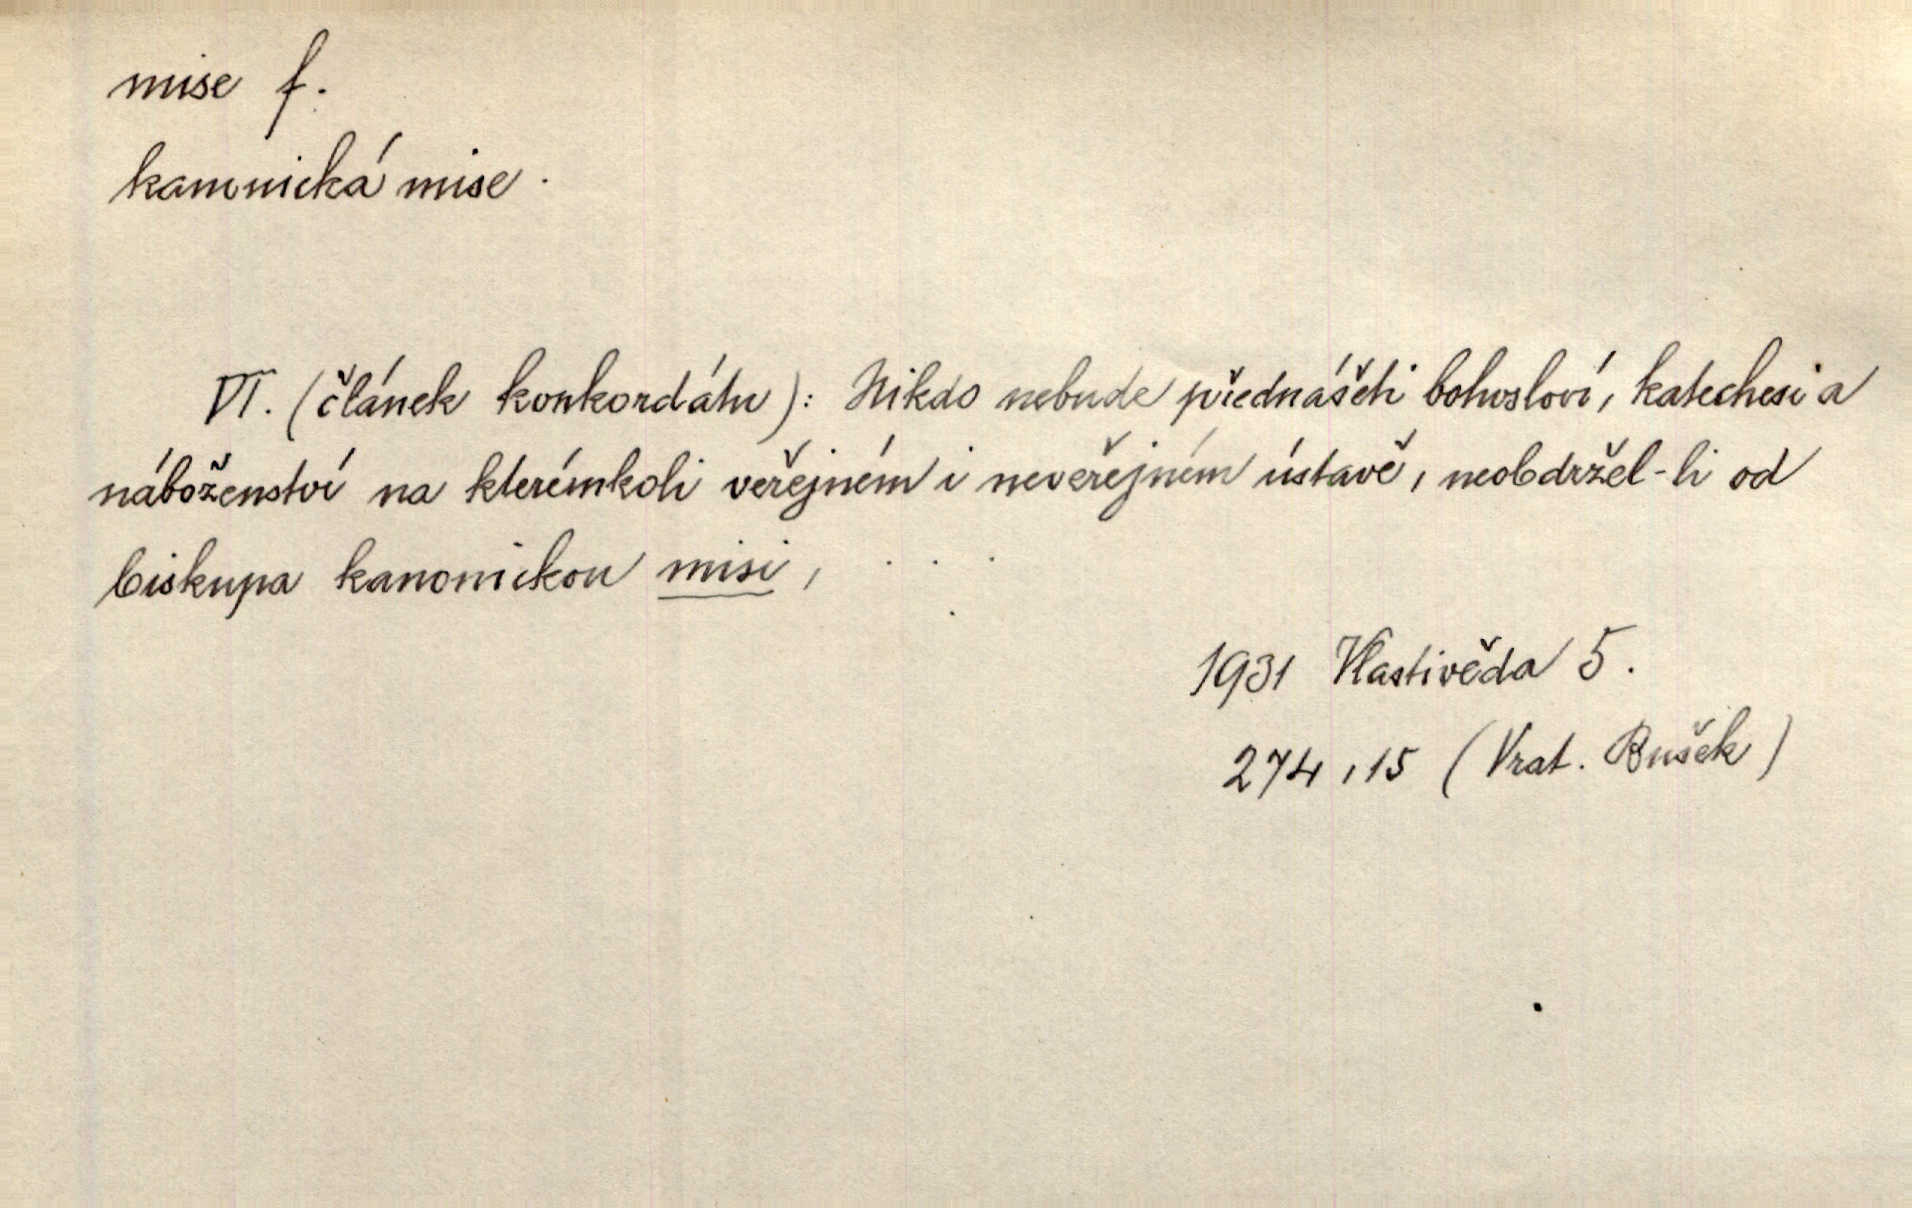 mise f.
kanonická mise.
VI. (článek konkordátu): Nikdo nebude přednášeti bohosloví, katechesi a
náboženství na kterémkoli veřejném i neveřejném ústavě, neobdržel-li od
biskupa kanonickou misi, . . .
1931 Vlastivěda 5.
274,15 (Vrat. Bušek)